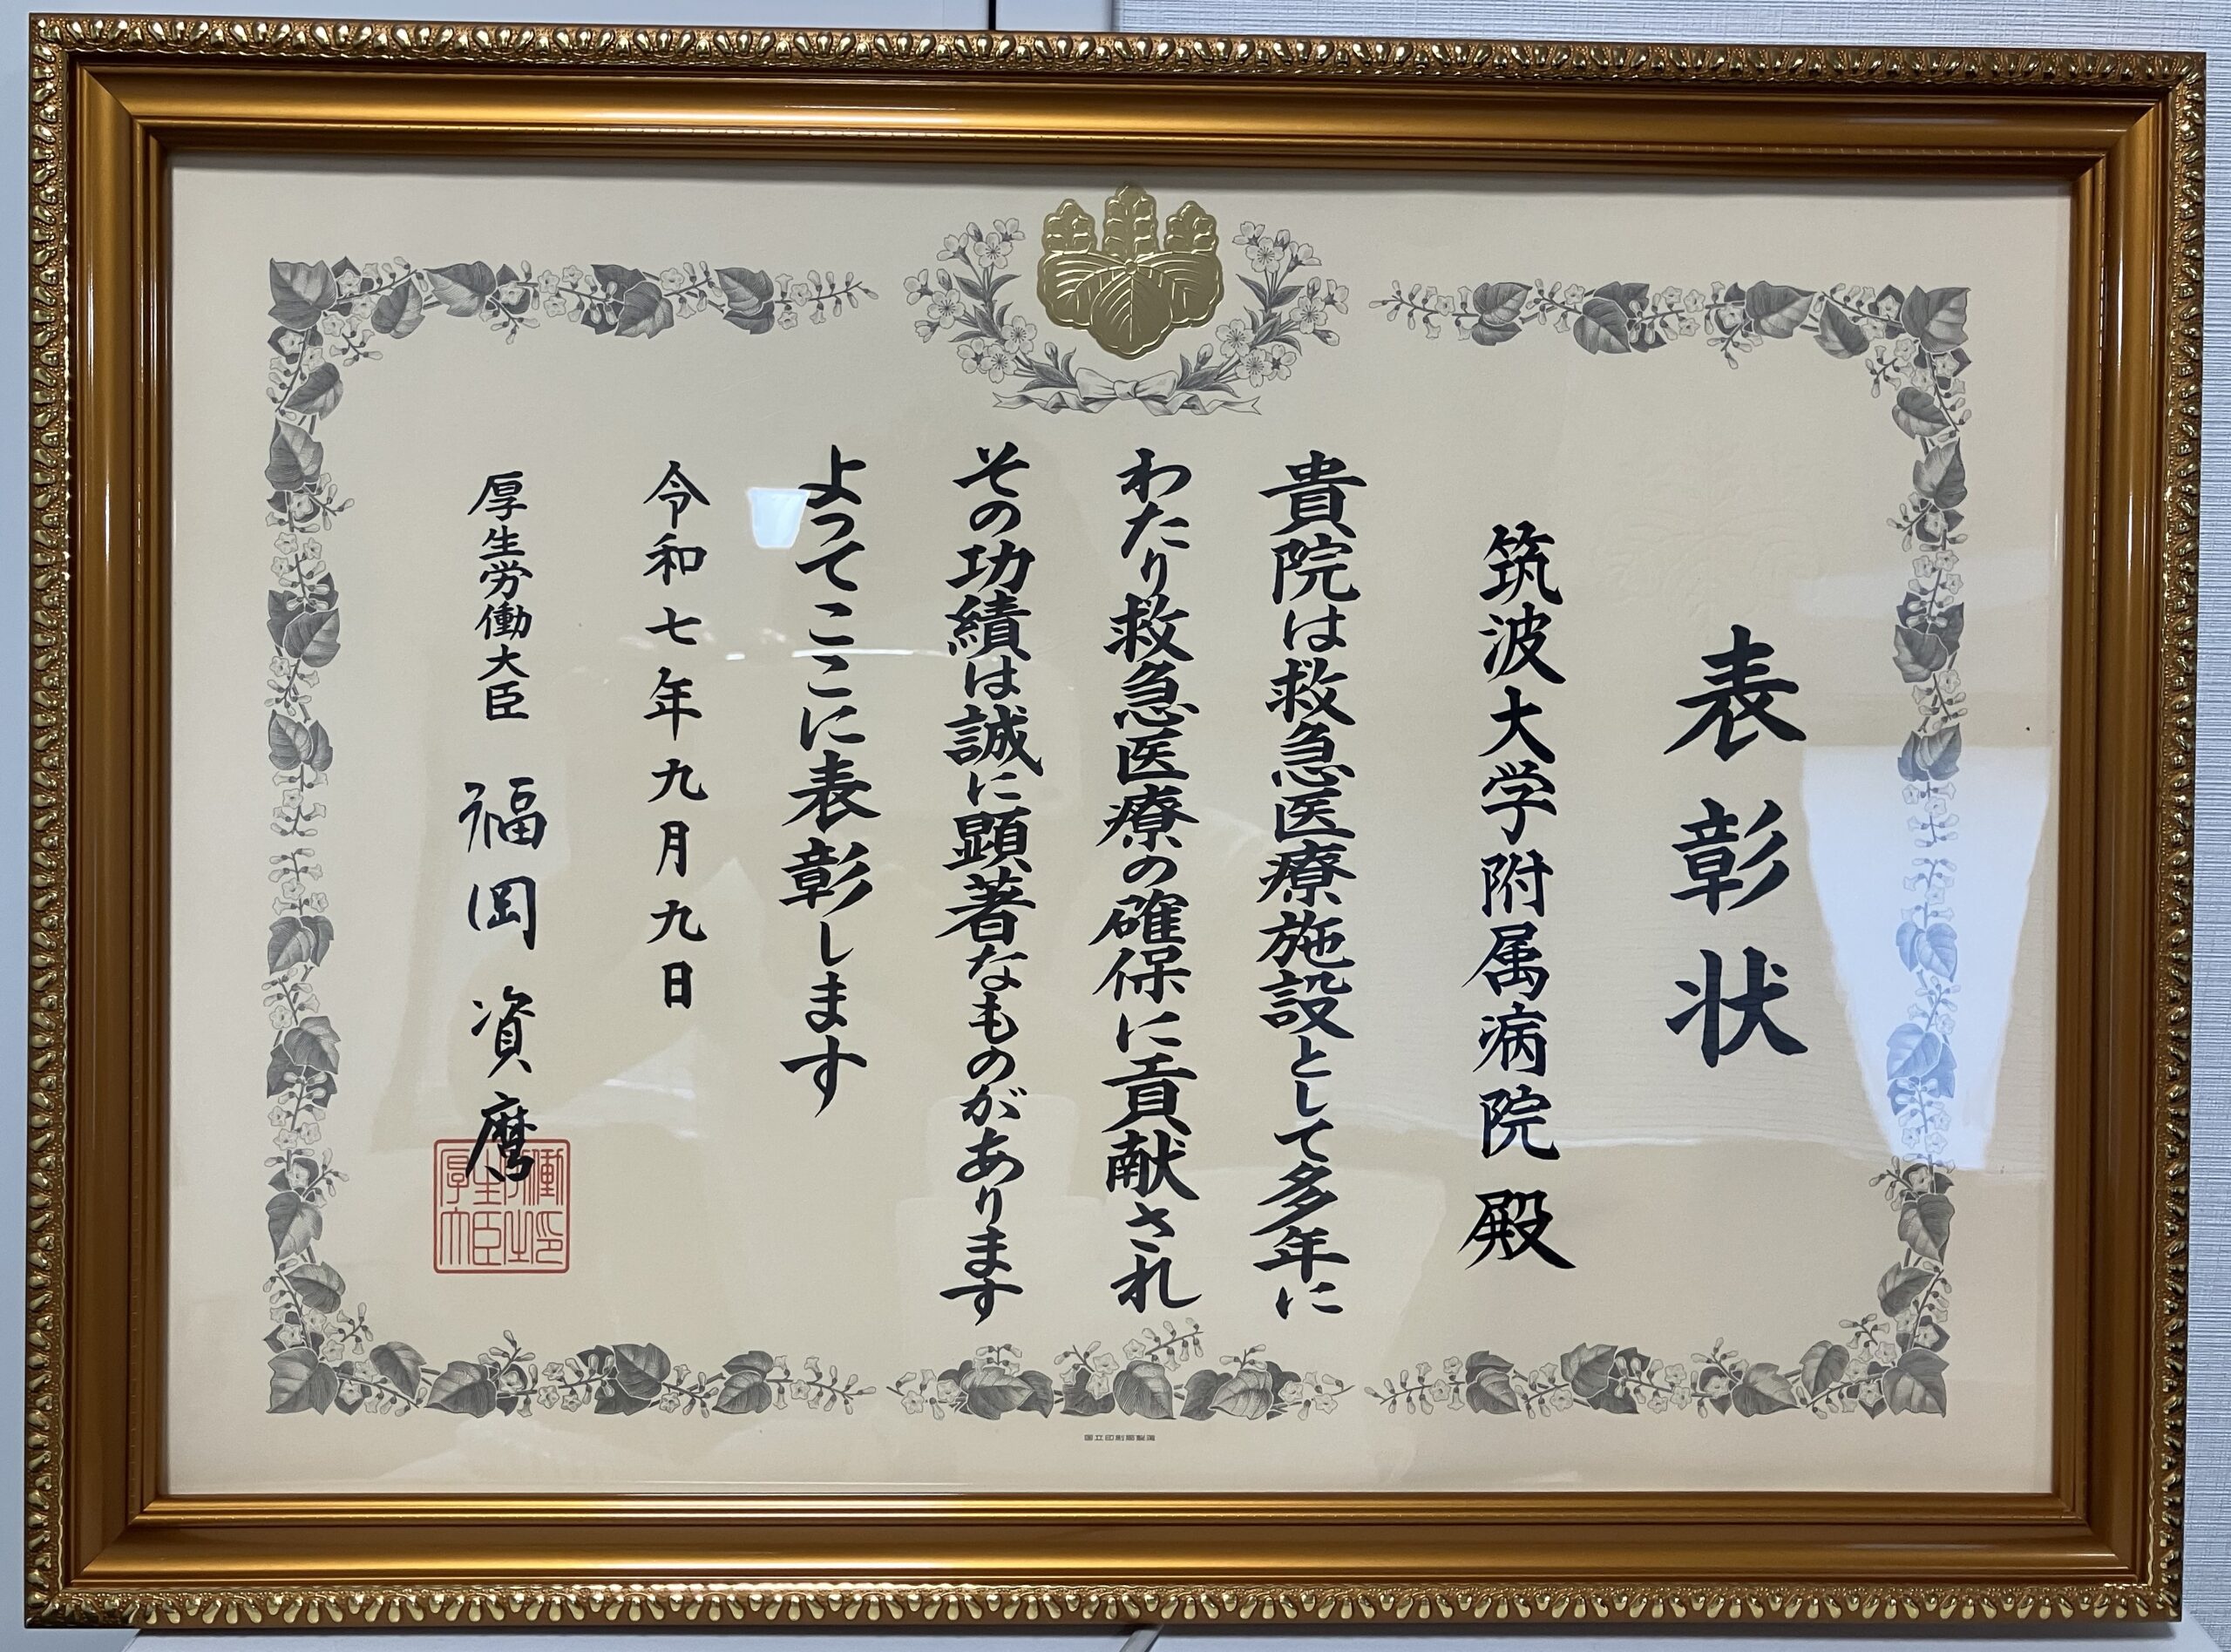 表彰状
筑波大学附属病院 殿
貴院は救急医療施設として多年に
わたり救急医療の確保に貢献され
その功績は誠に顕著なものがあります
よってここに表彰します
令和七年九月九日
厚生労働大臣 福岡資麿
国立印刷局製造